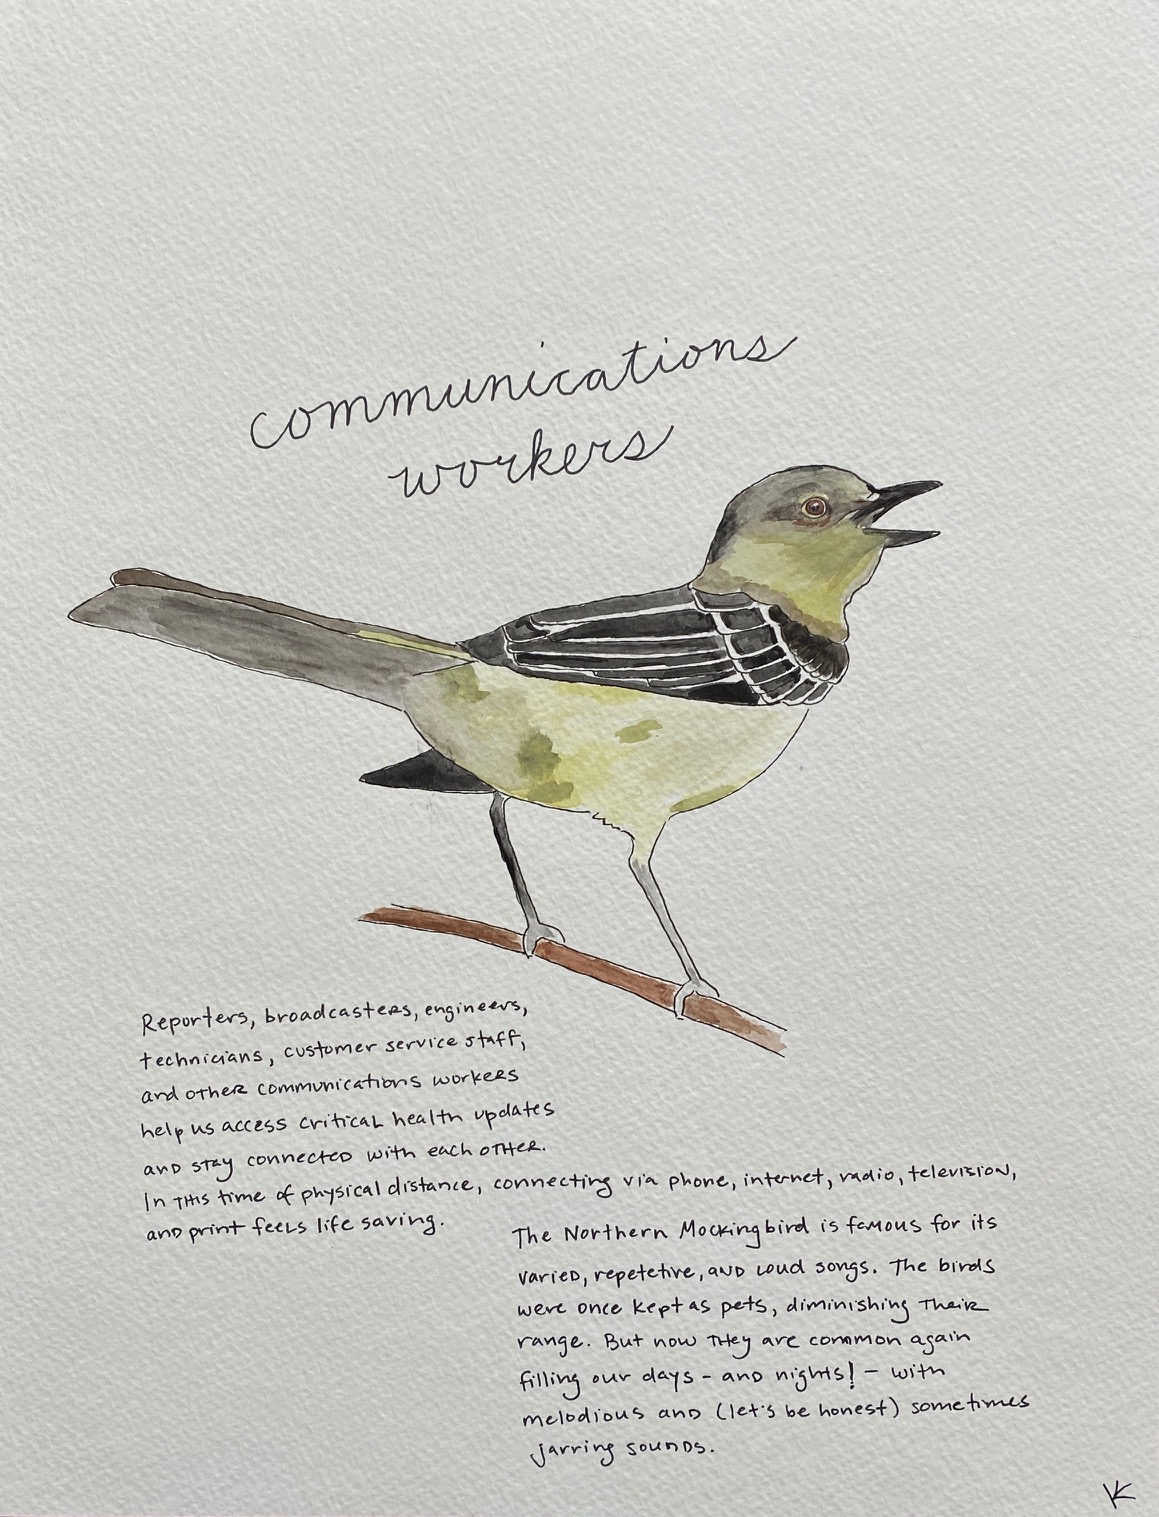 communications
workers
Reporters, broadcasters, engineers,
technicians, customer service staff,
and other communications workers
help us access critical health updates
and stay connected with each other.
In this time of physical distance, connecting via phone, internet, radio, television,
and print feels life saving.
The Northern Mockingbird is famous for its
varied, repetetive, and loud songs. The birds
were once kept as pets, diminishing their
range. But now they are common again
filling our days - and nights! - with
melodious and (let's be honest) sometimes
jarring sounds.
VK